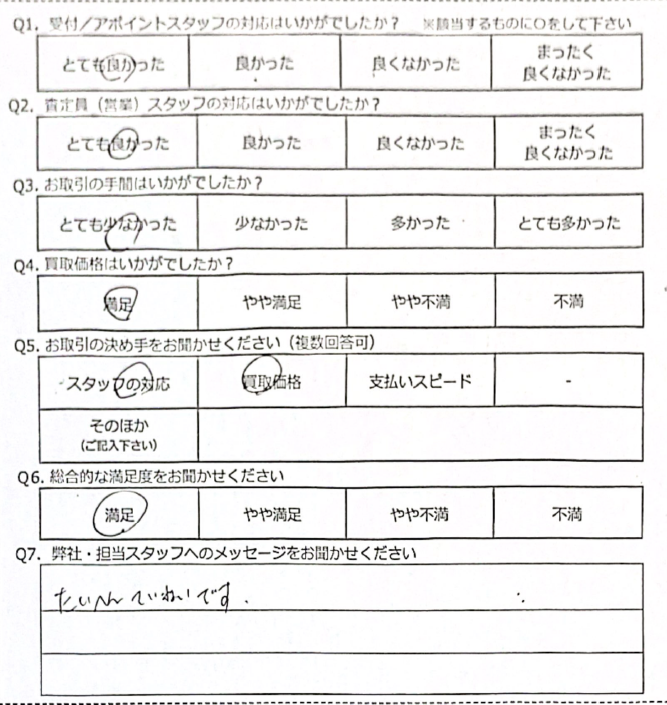 Q1. 受付／アポイントスタッフの対応はいかがでしたか？ ※該当するものに〇をして下さい
とても良かった 良かった 良くなかった まったく
良くなかった
Q2. 査定員（営業）スタッフの対応はいかがでしたか？
とても良かった 良かった 良くなかった まったく
良くなかった
Q3. お取引の手間はいかがでしたか？
とても少なかった 少なかった 多かった とても多かった
Q4. 買取価格はいかがでしたか？
満足 やや満足 やや不満 不満
Q5. お取引の決め手をお聞かせください（複数回答可）
スタッフの対応 買取価格 支払いスピード -
そのほか
(ご記入下さい)
Q6. 総合的な満足度をお聞かせください
満足 やや満足 やや不満 不満
Q7. 弊社・担当スタッフへのメッセージをお聞かせください
たいへんていねいです.